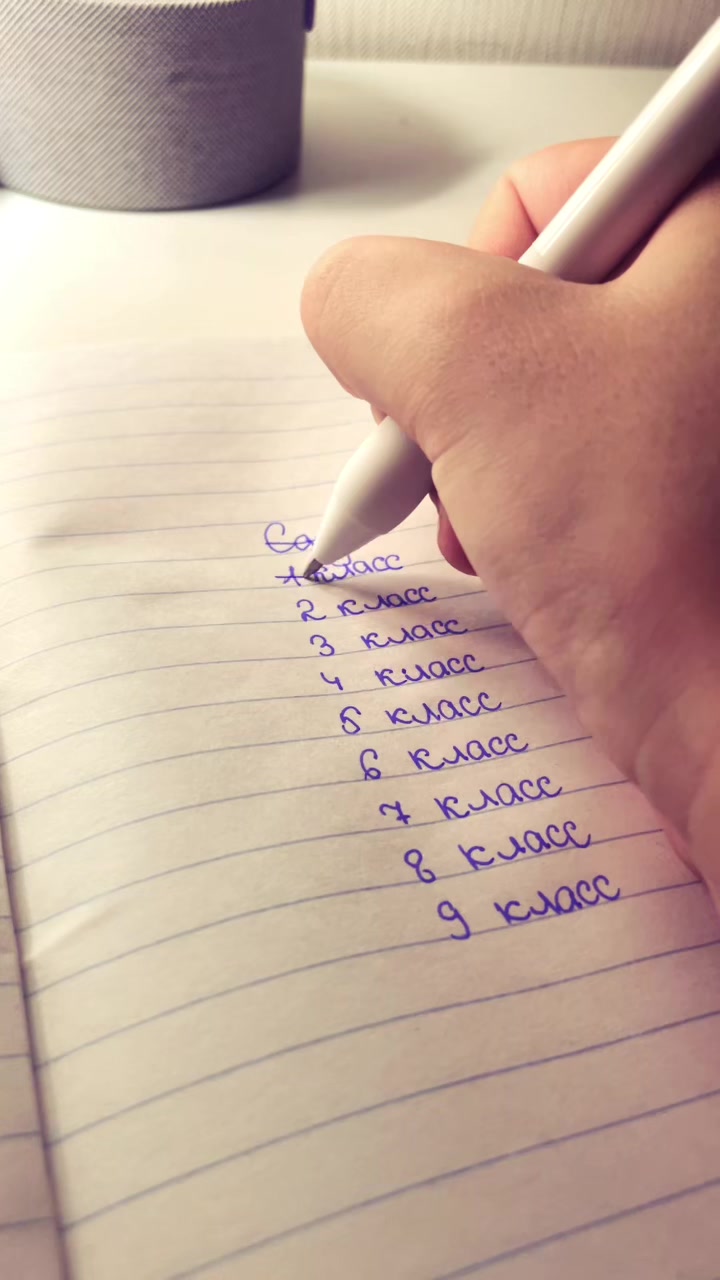 1 класс
2 класс
3 класс
4 класс
5 класс
6 класс
7 класс
8 класс
9 класс